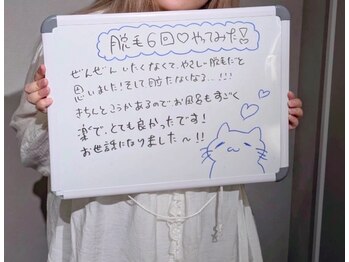 脱毛6回♡やってみた!
ぜんぜんしたくなくて、やさしい脱毛だと
思いました!そして目立たなくなる...!!!
きちんとこうかあるのでお風呂もすごく
楽で、とても良かったです!
お世話になりました〜!!